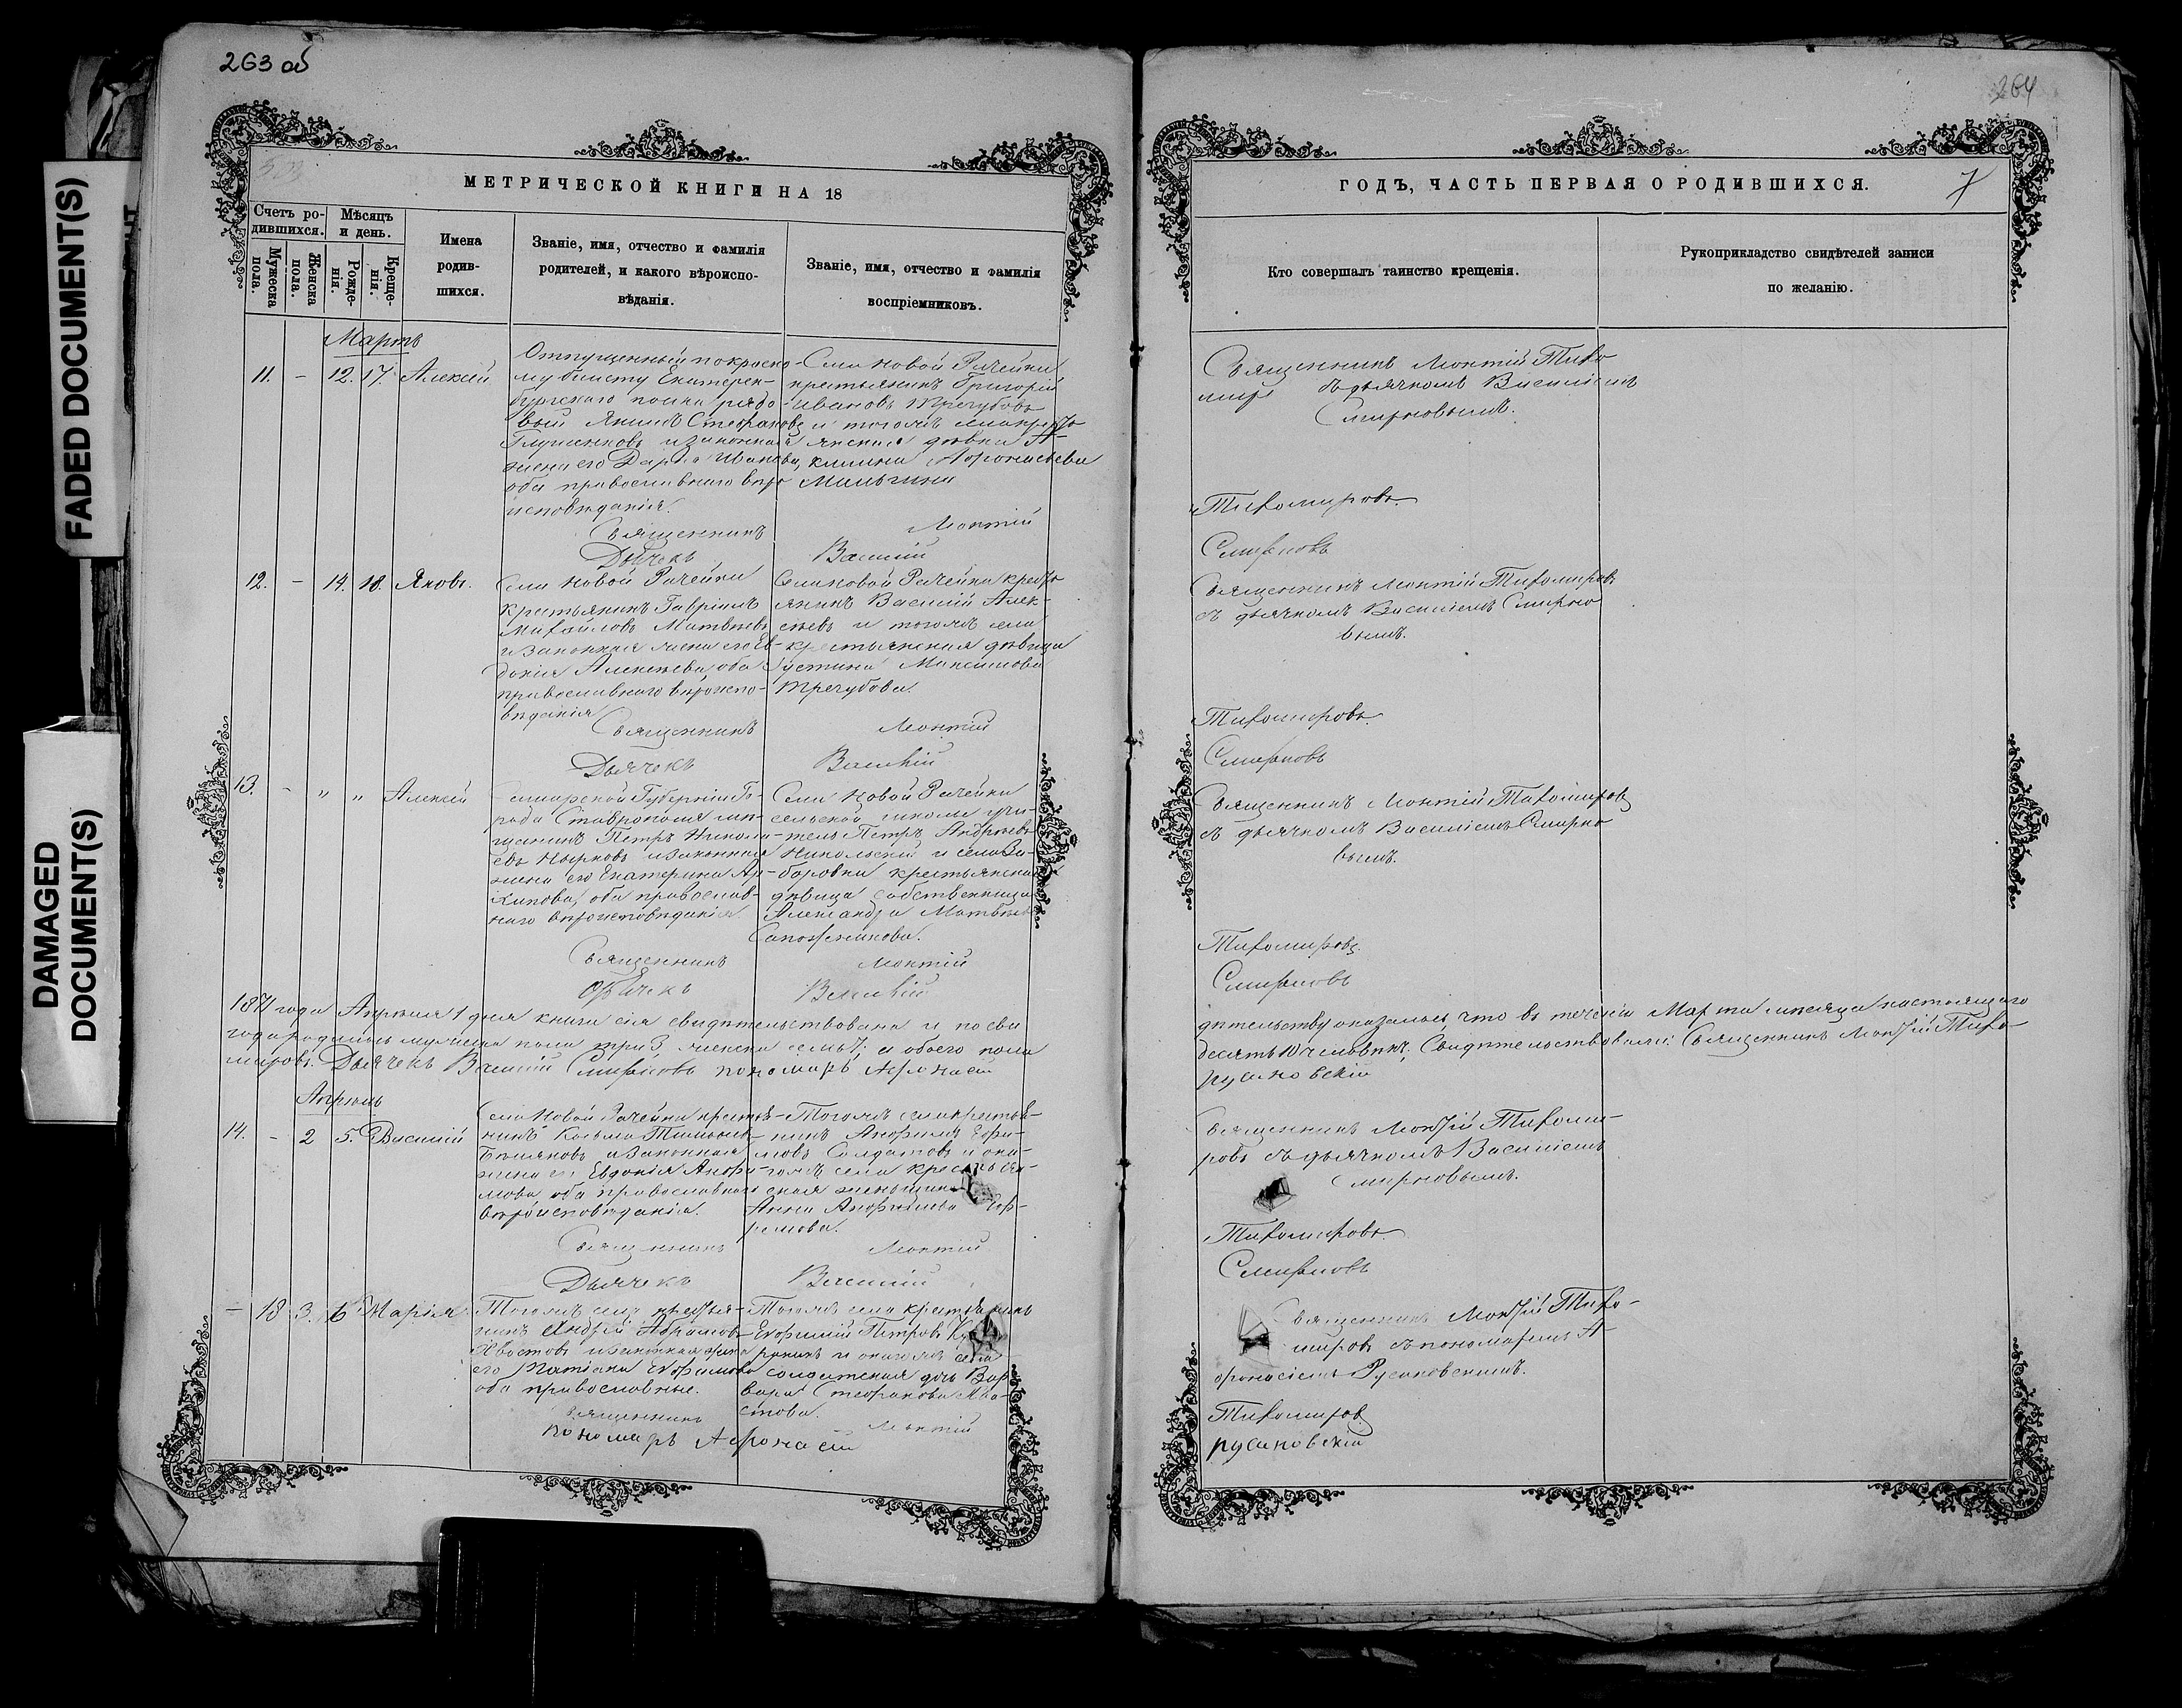 263 об
264
МЕТРИЧЕСКОЙ КНИГИ НА 18
ГОДЪ, ЧАСТЬ ПЕРВАЯ О РОДИВШИХСЯ.
7
Счетъ ро-
дившихся.
Мужеска
пола.
Женска
пола.
Мѣсяцъ
и день.
Рожде-
нія.
Креще-
нія.
Имена
родив-
шихся.
Званіе, имя, отчество и фамилія
родителей, и какого вѣроиспо-
вѣданія.
Званіе, имя, отчество и фамилія
воспріемниковъ.
Кто совершалъ таинство крещенія.
Рукоприкладство свидѣтелей записи
по желанію.
Мартъ
11. - 12. 17. Алексѣй
Отпущенный по
му билету Екатерин-
бургскаго полка рядо-
вый Стефановъ
и законная
жена его Дарья Иванова,
оба православнаго вѣро
исповѣданія.
Села Новой Рачейки
крестьянинъ Григорій
Ивановъ Трегубовъ
и тогожъ села крестъ
янская дѣвка А-
килина Афонасьева
Священникъ Леонтій
Дьячекъ Василій
Священникъ Леонтій Тихо
миров съ дьячкомъ Василіемъ
Смирновымъ.
Тихомировъ
Смирновъ
12. - 14. 18. Яковъ.
Села Новой Рачейки
крестьянинъ Гавріилъ
Михайловъ Матвѣевъ
и законная жена его Ев-
докія Алексѣева, оба
православнаго вѣроиспо-
вѣданія
Села Новой Рачейки кресть
янинъ Василій Алек-
сѣевъ и тогожъ села
крестьянская дѣвица
Устинья Максимова
Трегубова.
Священникъ Леонтій
Дьячекъ Василій
Священникъ Леонтій Тихомировъ
съ дьячкомъ Василіемъ Смирно
вымъ.
Тихомировъ
Смирновъ
13. - " " Алексѣй
Симбирской Губерніи Го-
рода Ставрополя мѣ-
щанинъ Петръ Никола-
евъ и законная
жена его Екатерина Ар-
хипова, оба православ-
наго вѣроисповѣданія
Села Новой Рачейки
сельской школы учи-
тель Петръ Андреевъ
Никольскій и села За-
боровки крестьянская
дѣвица собственница
Александра Матвѣева
Сапожникова.
Священникъ Леонтій
Дьячекъ Василій
Священникъ Леонтій Тихомировъ
съ дьячкомъ Василіемъ Смирно
вымъ.
Тихомировъ
Смирновъ
1871 года Апрѣля 1 дня книга сія свидѣтельствована и по сви
дѣтельству оказалось, что въ теченіи Марта мѣсяца настоящаго
года родилось мужеска пола три 3, женска семь 7, и обоего пола
десять 10 человѣкъ; Свидѣтельствовали: Священникъ Леонтій Тихо-
мировъ. Дьячекъ Василій Смирновъ пономарь Афонасій
Русановскій
Апрѣль
14. - 2 5. Василій
Села Новой Рачейки крестья-
нинъ Косьма
Бѣляковъ и законная
жена его Евдокія Анфи-
мова, оба православнаго
вѣроисповѣданія.
Тогожъ села крестья-
нинъ Анфимъ Ефи-
мовъ Солдатовъ и она-
гожъ села крестья-
ская женщина
Анна Анфимова Еф-
ремова.
Священникъ Леонтій
Дьячекъ Василій
Священникъ Леонтій Тихоми-
ровъ съ дьячкомъ Василіемъ
Смирновымъ.
Тихомировъ
Смирновъ
- 18 3. 6 Марія
Тогожъ села крестья-
нинъ Андрей Абрамовъ
Хвостовъ и законная жена
его Татіана Ефимова
оба православные.
Тогожъ села крестьянинъ
Евфимій Петровъ
и онагожъ села
солдатская дочь Вар
вара Стефанова Хво
стова.
Священникъ Леонтій
Пономарь Афонасій
Священникъ Леонтій Тихо-
мировъ съ пономаремъ А-
фонасіемъ Русановскимъ.
Тихомировъ
Русановскій
FADED DOCUMENT(S)
DAMAGED
DOCUMENT(S)